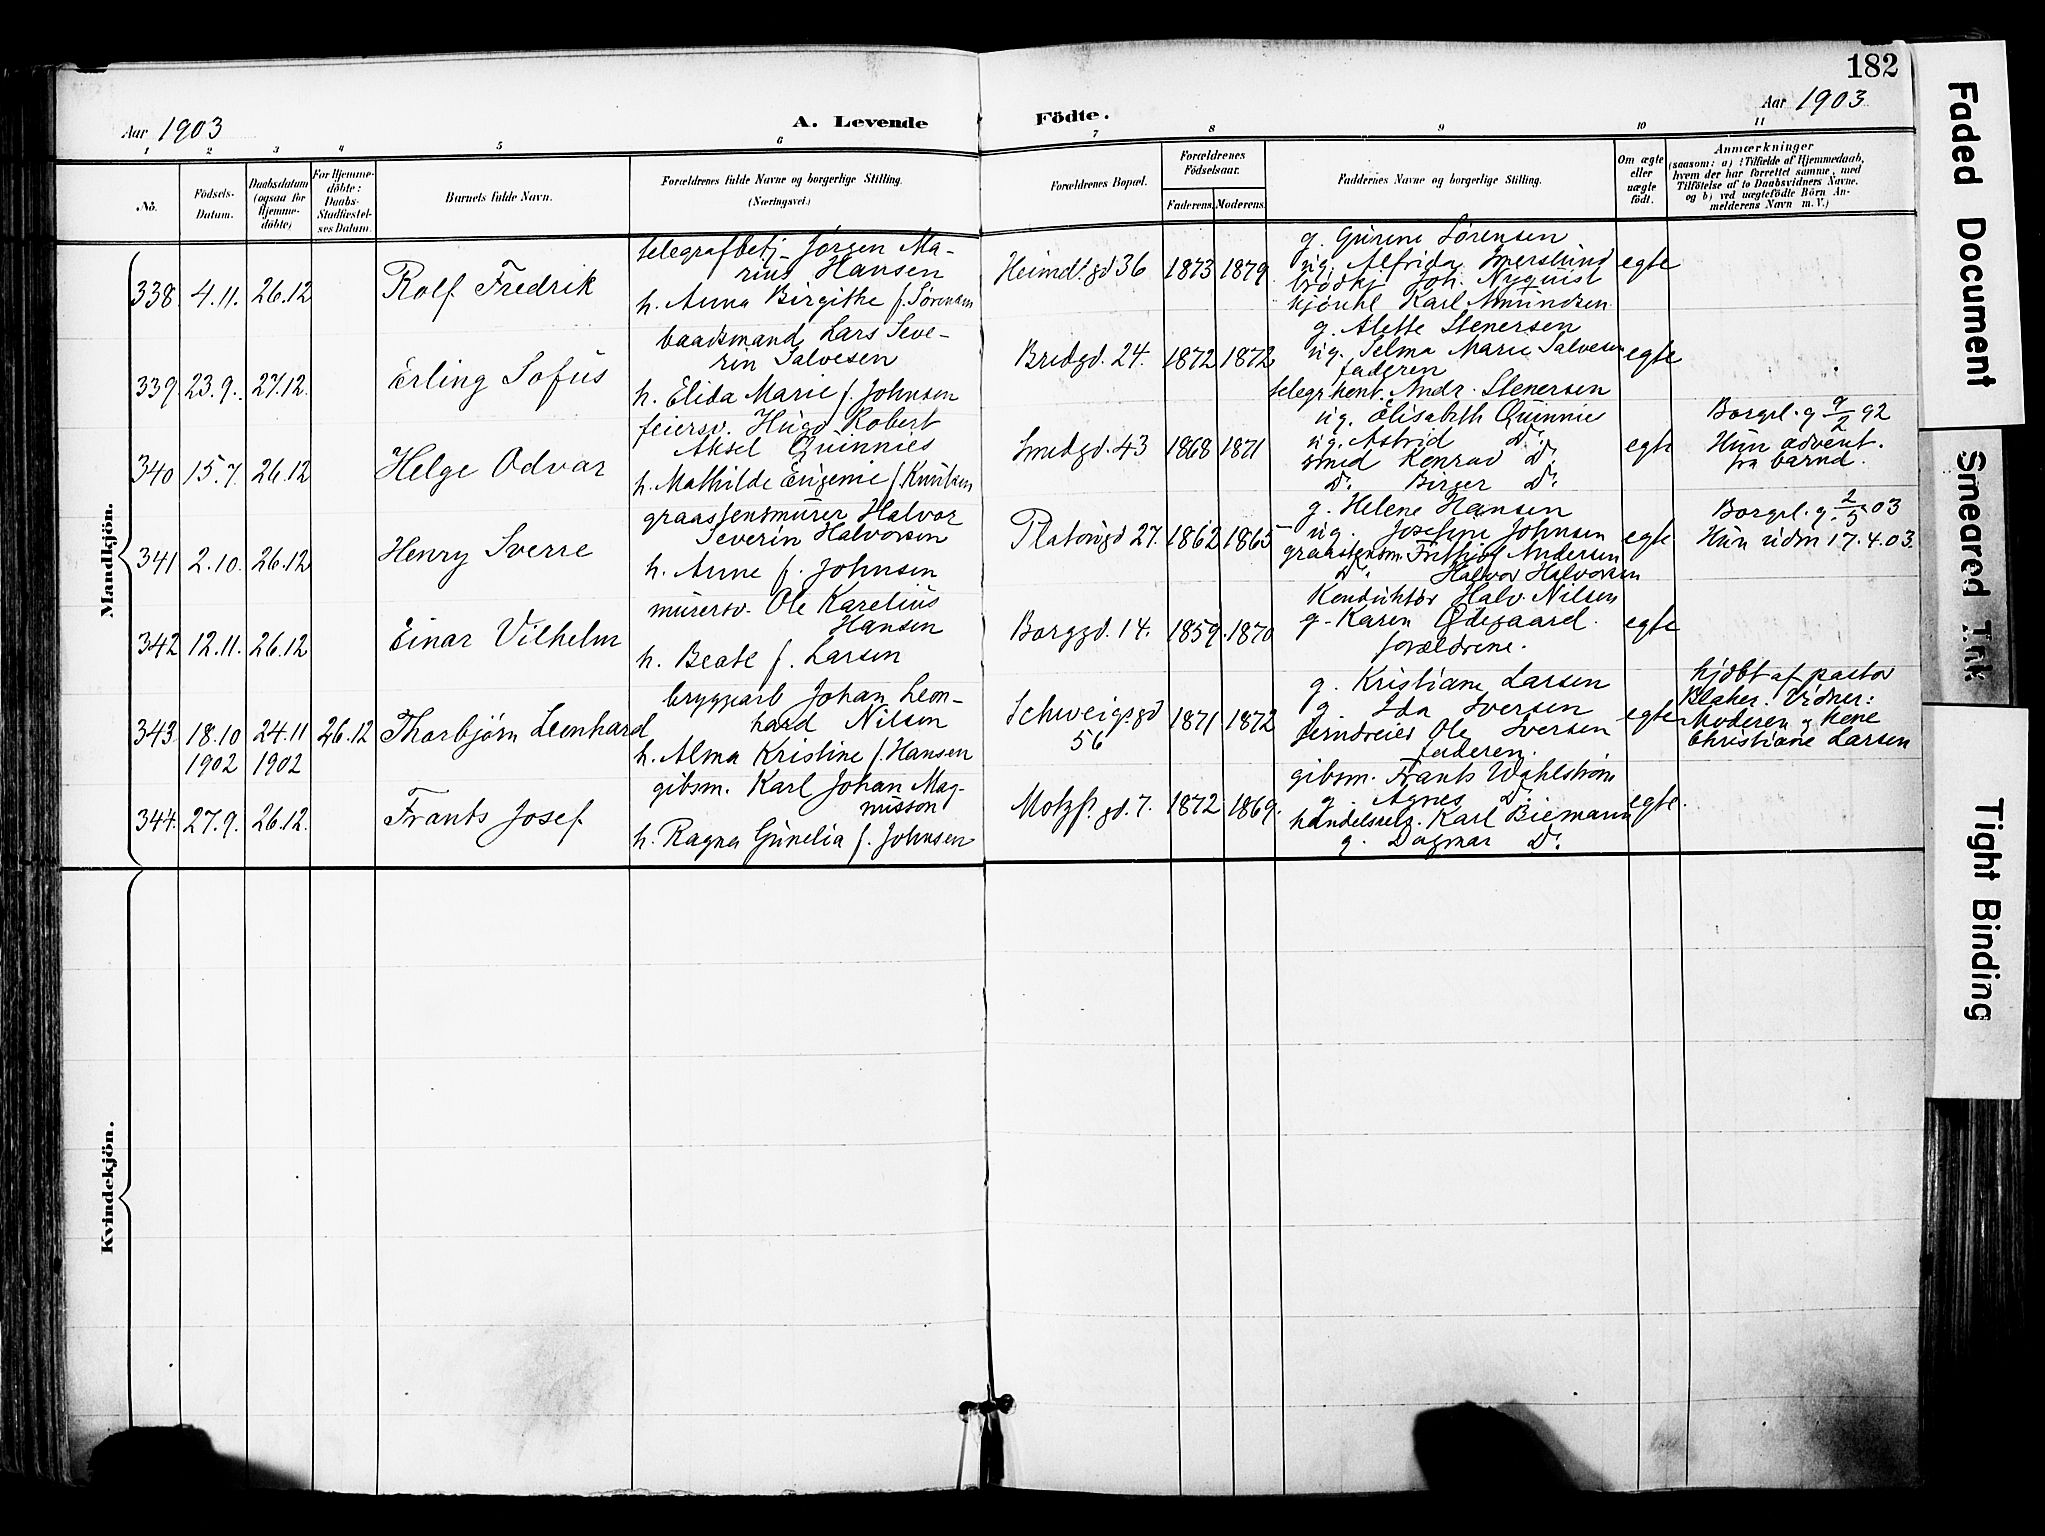 182
Aar 1903
A. Levende
Födte.
Aar 1903
1 2 3 4 5 6 7 8 9 10 11
No.
Födsels-
Datum.
Daabsdatum
(ogsaa for
Hjemme-
döbte)
For Hjemme-
döbte:
Daabs-
Stadfæstel-
ses Datum.
Barnets fulde Navn.
Forældrenes fulde Navne og borgerlige Stilling.
(Næringsvei.)
Forældrenes Bopæl.
Forældrenes
Födselsaar.
Faderens. Moderens.
Faddernes Navne og borgerlige Stilling.
Om ægte
eller
uægte
födt.
Anmærkninger
(saasom: a) i Tilfælde af Hjemmedaab,
hvem der har forrettet samme, med
Tilföielse af to Daabsvidners Navne.
og b) ved uægtefödte Börn An-
melderens Navn m. V.)
Mandkjön.
338. 4.11. 26.12 Rolf Fredrik
telegrafbetj. Jørgen Ma-
rius Hansen
h. Anna Birgithe f. Sörensen
Heimd.gd 36 1873 1879.
g. Gurine Sørensen
ug. Alfrida Smerslund
Joh. Nyquist
Karl Amundsen
egte
339. 23.9. 27.12. Erling Sofus
baadsmand Lars Seve-
rin Salvesen
h. Elida Marie f. Johnsen
Bredgd. 24. 1872 1872
g. Alette Stenersen
ug. Selma Marie Salvesen
faderen
telegr.kont. Andr. Stenersen
egte
340 15.7. 26.12 Helge Odvar
feiersv. Hugo Robert
Aksel Quinnies
h. Mathilde Eugenie f. Knutsen
Smedgd. 43 1868 1871
ug. Elisabeth Quinnie
ug. Astrid Do.
smed Konrad Do.
Do. Birger Do.
egte
Borgel. g 9/2 92
Hun advent.
fra barnd.
341 2.10. 26.12 Henry Sverre
graastensmurer Halvor
Severin Halvorsen
h. Anne f. Johnsen
Platougd 27. 1862 1865
g. Helene Hansen
ug. Josefine Johnsen
graastensm. Frithjof Andersen
Do. Halvor Halvorsen
egte
Borgel. g. 2/5 03
Hun udm 17.4.03.
342 12.11. 26.12 Einar Vilhelm
murersv. Ole Karelius
Hansen
h. Beate f. Larsen
Borggd. 14. 1859. 1870
Konduktør Halv. Nilsen
g. Karen Ødegaard.
forældrene.
egte
343 18.10 24.11 26.12 Thorbjørn Leonhard
1902 1902
bryggearb Johan Leon-
hard Nilsen
h. Alma Kristine f. Hansen
Schweigs.gd
56
1871 1872
g. Kristiane Larsen
g Ida Iversen
jerndreier Ole Iversen
faderen.
egte
hjdbt af pastor
Blaker. Vidner:
Moderen g Kone
Christiane Larsen
344. 27.9. 26.12. Frants Josef
gibsm. Karl Johan Mag-
nusson
h. Ragna Gunelia f. Johnsen
Motzf. gd. 7. 1872 1869.
gibsm. Frants Wahlstrøm
g. Agnes Do.
handelsreis. Karl Biemann
g. Dagmar Do.
egte.
Kvindekjön.
Faded Document
Smeared Ink
Tight Binding